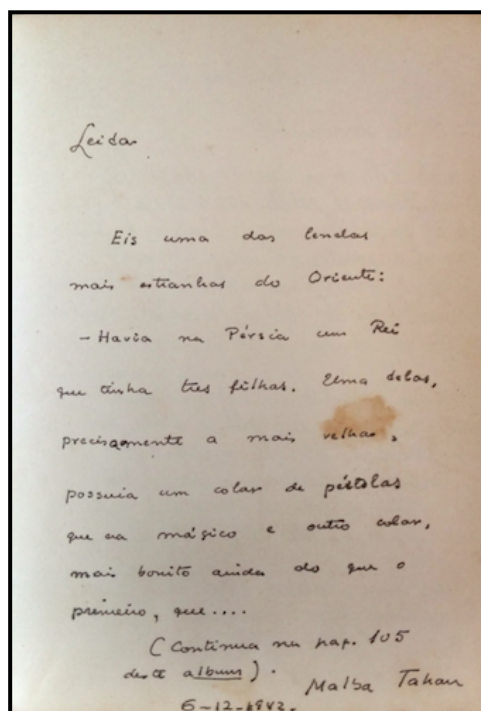 Leida
Eis uma das lendas
mais estranhas do Oriente:
- Havia na Pérsia um Rei
que tinha tres filhas. Uma delas,
precisamente a mais velha,
possuia um colar de pétolas
que era mágico e outro colar,
mais bonito ainda do que o
primeiro, que....
(Continua na pag. 105
deste album).
Malba Tahan
6-12-1942.